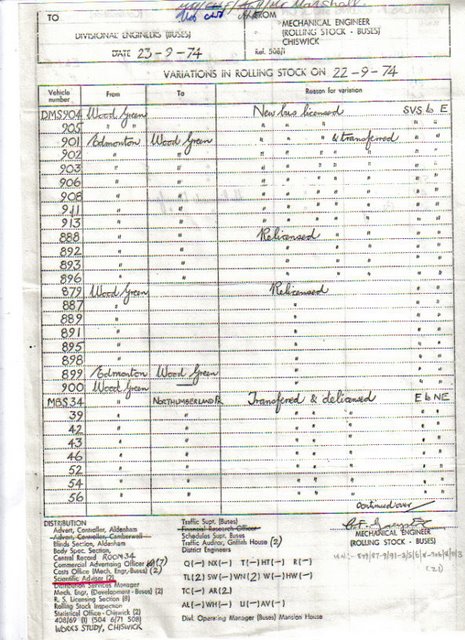 TO
FROM
DIVISIONAL ENGINEERS (BUSES)
MECHANICAL ENGINEER
(ROLLING STOCK - BUSES)
CHISWICK
DATE 23-9-74
Ref. 508/1
VARIATIONS IN ROLLING STOCK ON 22-9-74
Vehicle number From To Reason for variation
DMS904 Wood Green New bus licensed SVS b E
905 " " " " " " "
901 Edmonton Wood Green " " " & transferred " "
902 " " " " " " " "
903 " " " " " " " "
906 " " " " " " " "
908 " " " " " " " "
911 " " " " " " " "
913 " " " " " " " "
888 " " Relicensed " "
892 " " " " "
893 " " " " "
896 " " " " "
879 Wood Green Relicensed " "
887 " "
889 " "
891 " "
895 " "
898 " "
899 Edmonton Wood Green "
900 Wood Green "
MBS34 " NORTHUMBERLAND PK Transferred & delicensed E b NE
39 " " " " "
42 " " " " "
43 " " " " "
46 " " " " "
52 " " " " "
54 " " " " "
56 " " " " "
Continued over
DISTRIBUTION
Advert. Controller, Aldenham
Advert. Controller, Camberwell
Blinds Section, Aldenham
Body Spec. Section,
Central Record ROOM 34
Commercial Advertising Officer (7)
Costs Office (Mech. Engr.-Buses) (2)
Scientific Adviser (2)
Distribution Services Manager
Mech. Engr. (Development - Buses) (2)
R. S. Licensing Section (8)
Rolling Stock Inspection
Statistical Office - Chiswick (2)
408/69 (1) (504 6/71 508)
WORKS STUDY, CHISWICK
Traffic Supt. (Buses)
Financial Research Officer
Schedules Supt. Buses
Traffic Auditor, Griffith House (2)
District Engineers
Q(—) NX(—) T(—) HT(—) R(—)
TL(2) SW(—) WN(2) W(—) HW(—)
TC(—) AR(2)
AL(—) WH(—) U(—) AV(—)
Divl. Operating Manager (Buses) Mansion House
MECHANICAL ENGINEER
(ROLLING STOCK - BUSES)